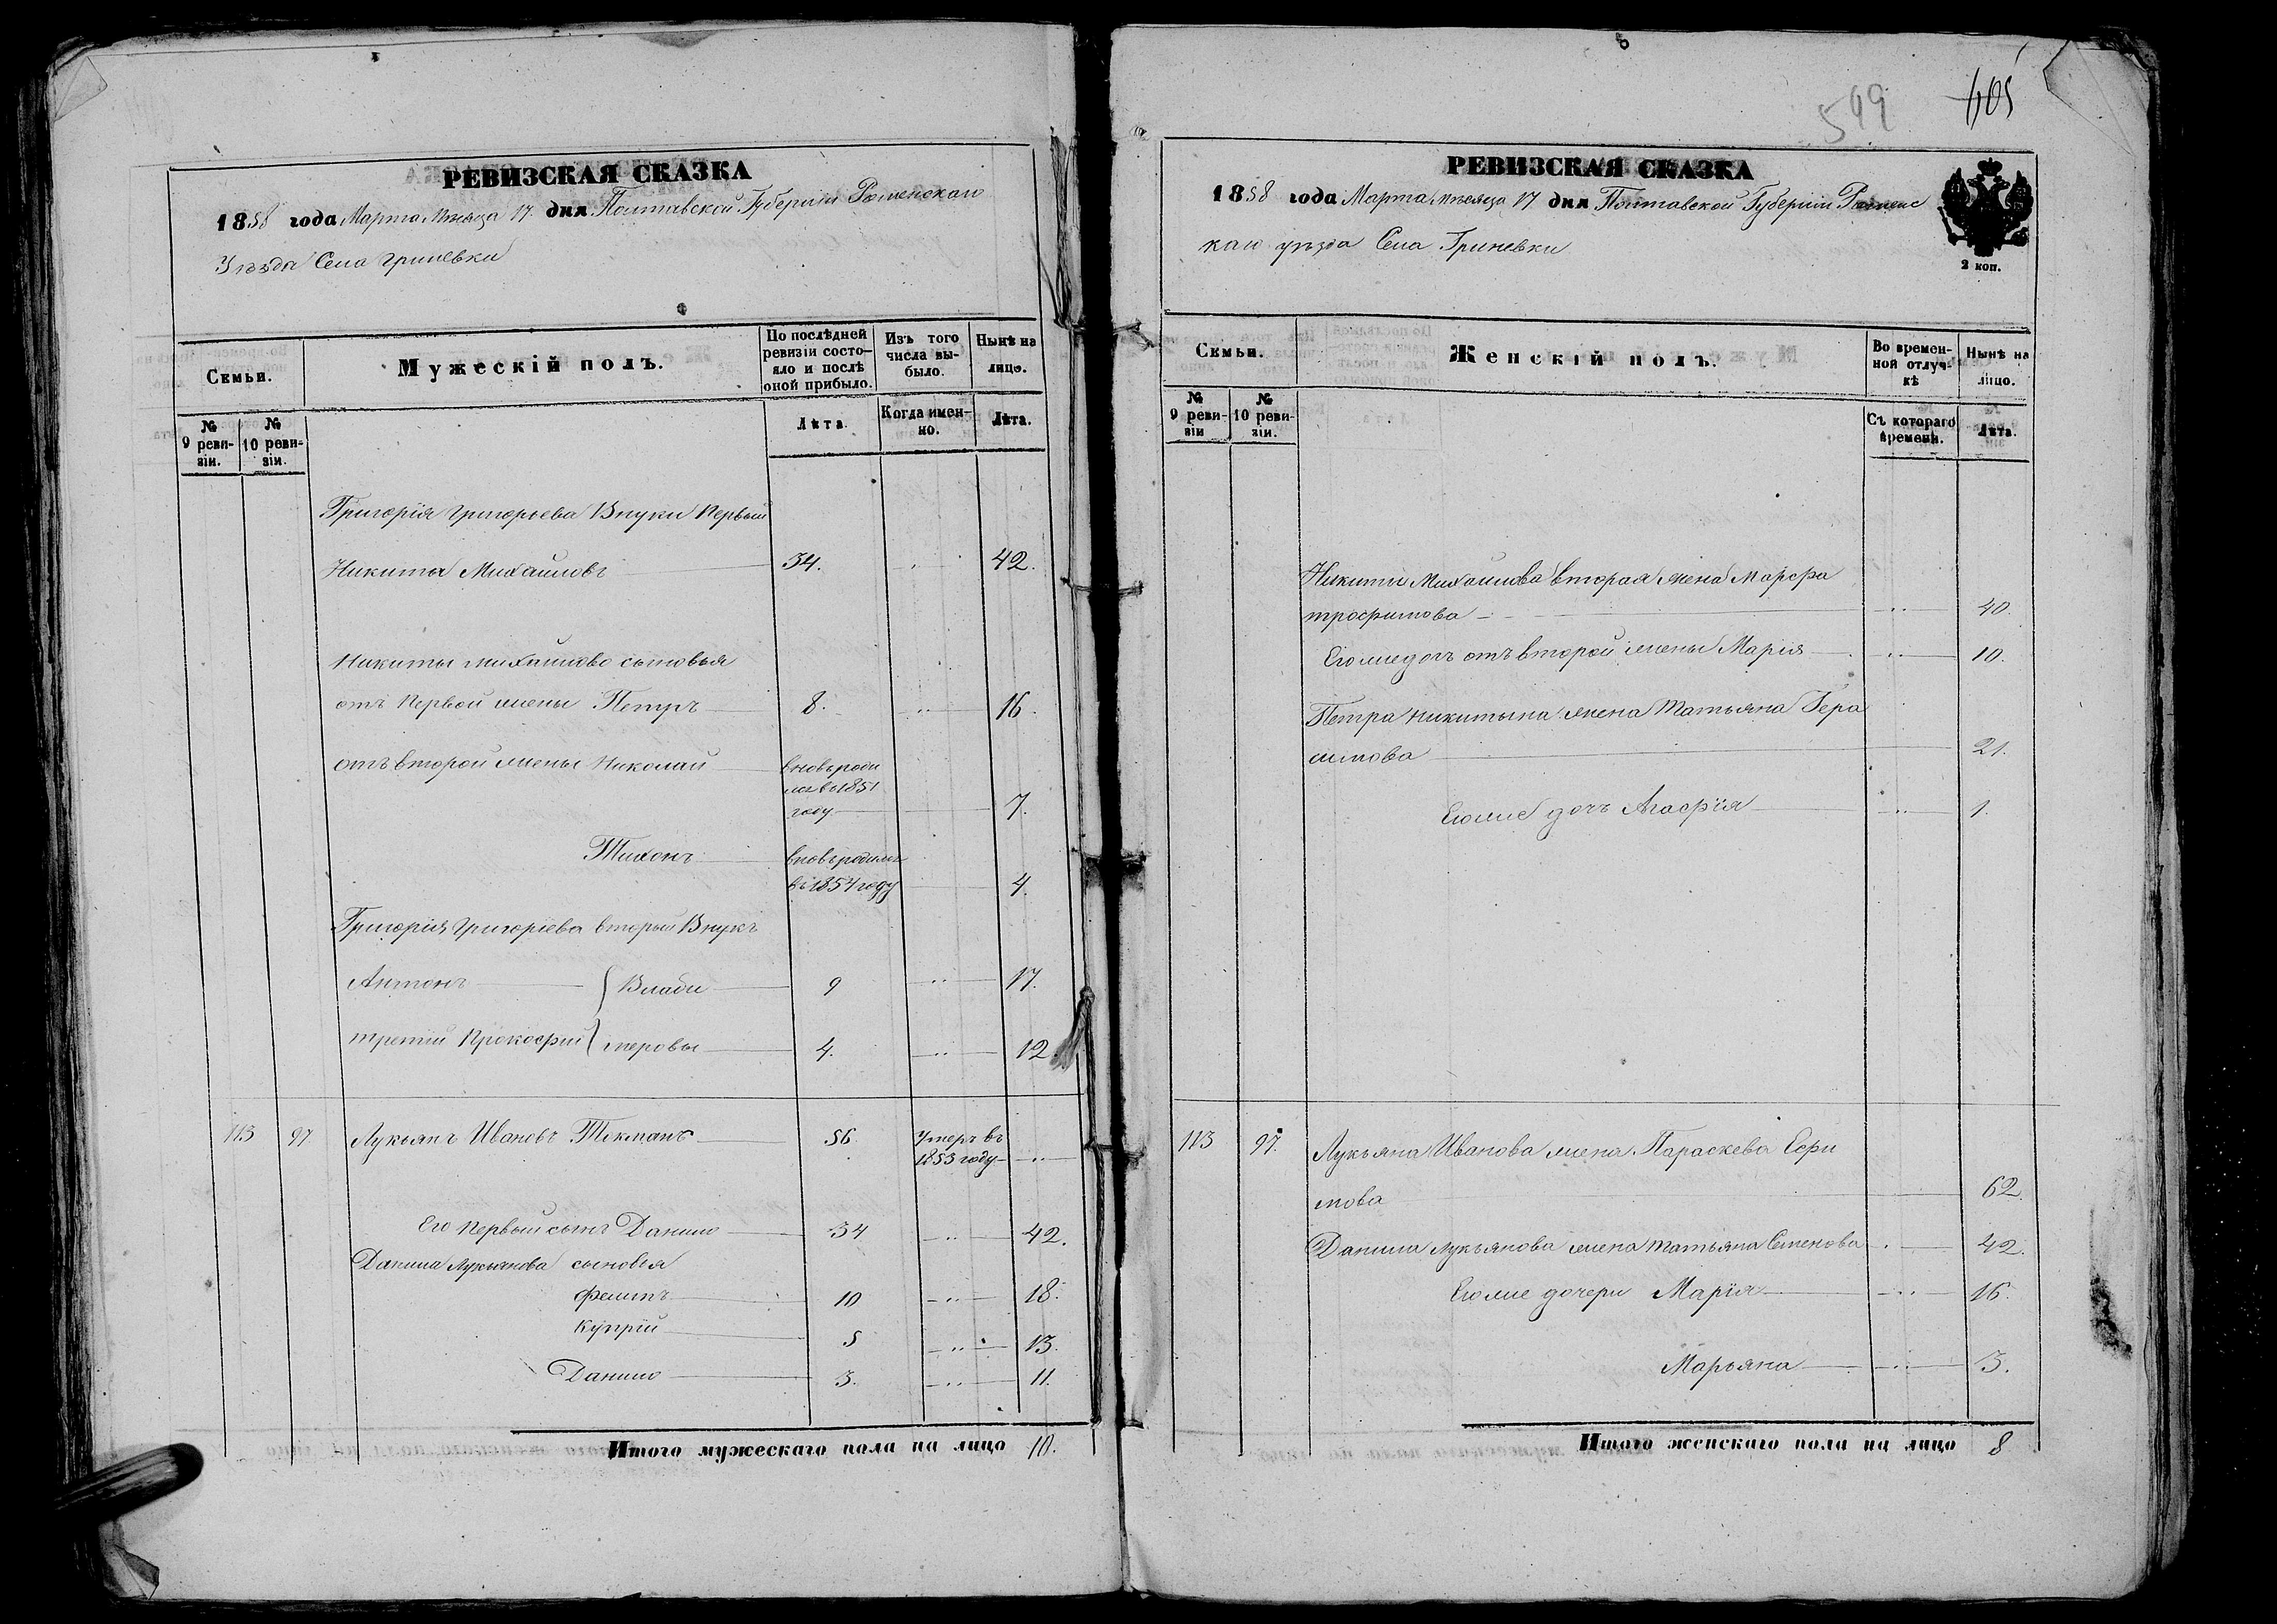 РЕВИЗСКАЯ СКАЗКА
1858 года Марта Месяца 17 дня Полтавской Губерніи Роменскаго
Уезда Села Гриневки
Семьи.
Мужескій полъ.
По послѣдней
ревизіи состо-
яло и послѣ
оной прибыло.
Изъ того
числа вы-
было.
Нынѣ на
лицо.
№
9 реви-
зіи.
№
10 реви-
зіи.
Лѣта.
Когда имен-
но.
Лѣта.
Григорія Григорьева Внуки Первый
Никита Михайловъ 34. 42.
Никиты Михайлова сыновья
отъ Первой жены Петръ 8. 16.
отъ второй жены Николай вновь роди
лся въ 1851
году 7.
Тихонъ вновь родился
въ 1854 году 4.
Григорія Григоріева вторый Внукъ
Антонъ Влади 9 17.
третій Прокофій меровы 4. 12.
113 97 Лукьянъ Ивановъ Токманъ 56. Умеръ въ
1853 году
Его Первый сынъ Данило 34 42.
Данила Лукьянова сыновья
Филипъ 10 18.
Купрій 5 13.
Данило 3. 11.
Итого мужескаго пола на лицо 10.
549 405
РЕВИЗСКАЯ СКАЗКА
1858 года Марта месяца 17 дня Полтавской Губерніи Роменс
каго уезда Села Гриневки
2 коп.
Семьи.
Женскій полъ.
Во времен-
ной отлуч-
кѣ
Нынѣ на
лицо.
№
9 реви-
зіи
№
10 реви-
зіи.
Съ котораго
времени.
Лѣта.
Никиты Михайлова вторая жена Марфа
трофимова 40.
Его же дочь отъ второй жены Марія 10.
Петра Никитына жена Татьяна Гера
симова 21.
Его же дочь Агафія 1.
113 97. Лукьяна Иванова жена Параскева Ефи
мова 62.
Данила Лукьянова жена татьяна Семенова 42.
Его же дочери Марія 16.
Марьяна 3.
Итого женскаго пола на лицо 8